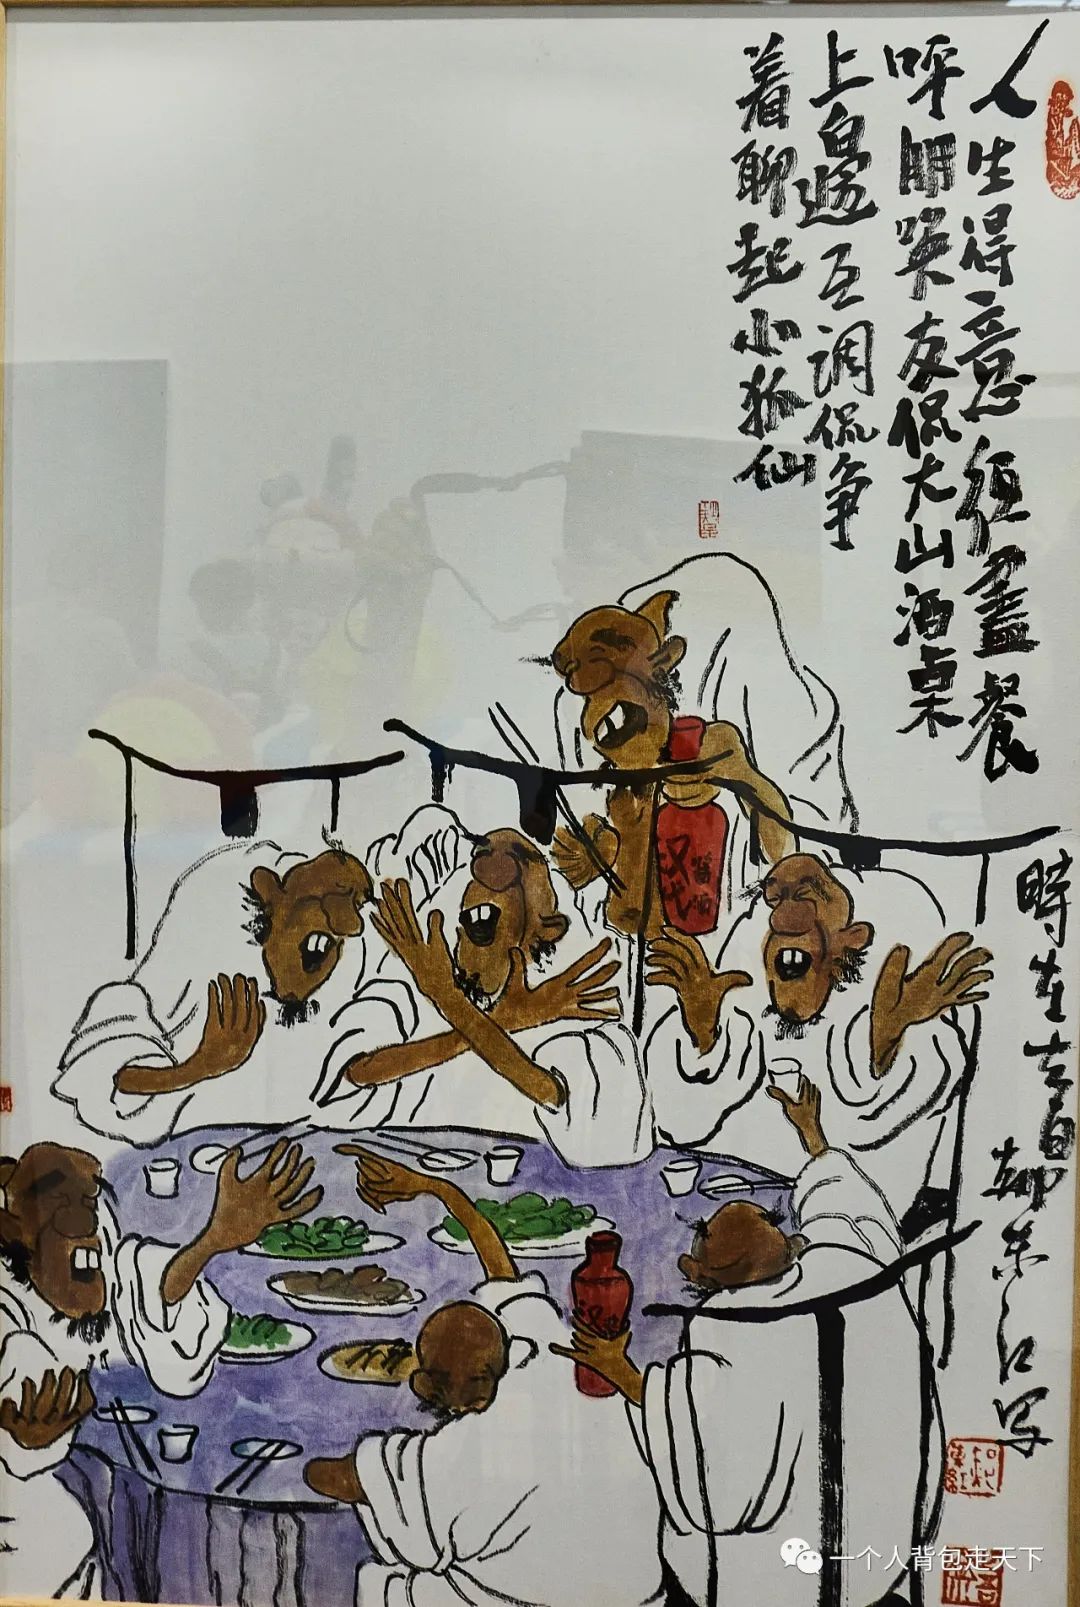 人生得意须尽餐
呼朋唤友侃大山酒桌
上白邈互调侃争
着聊起小狐仙
时在
东江写
汉代
酱酒
汉
一个人背包走天下